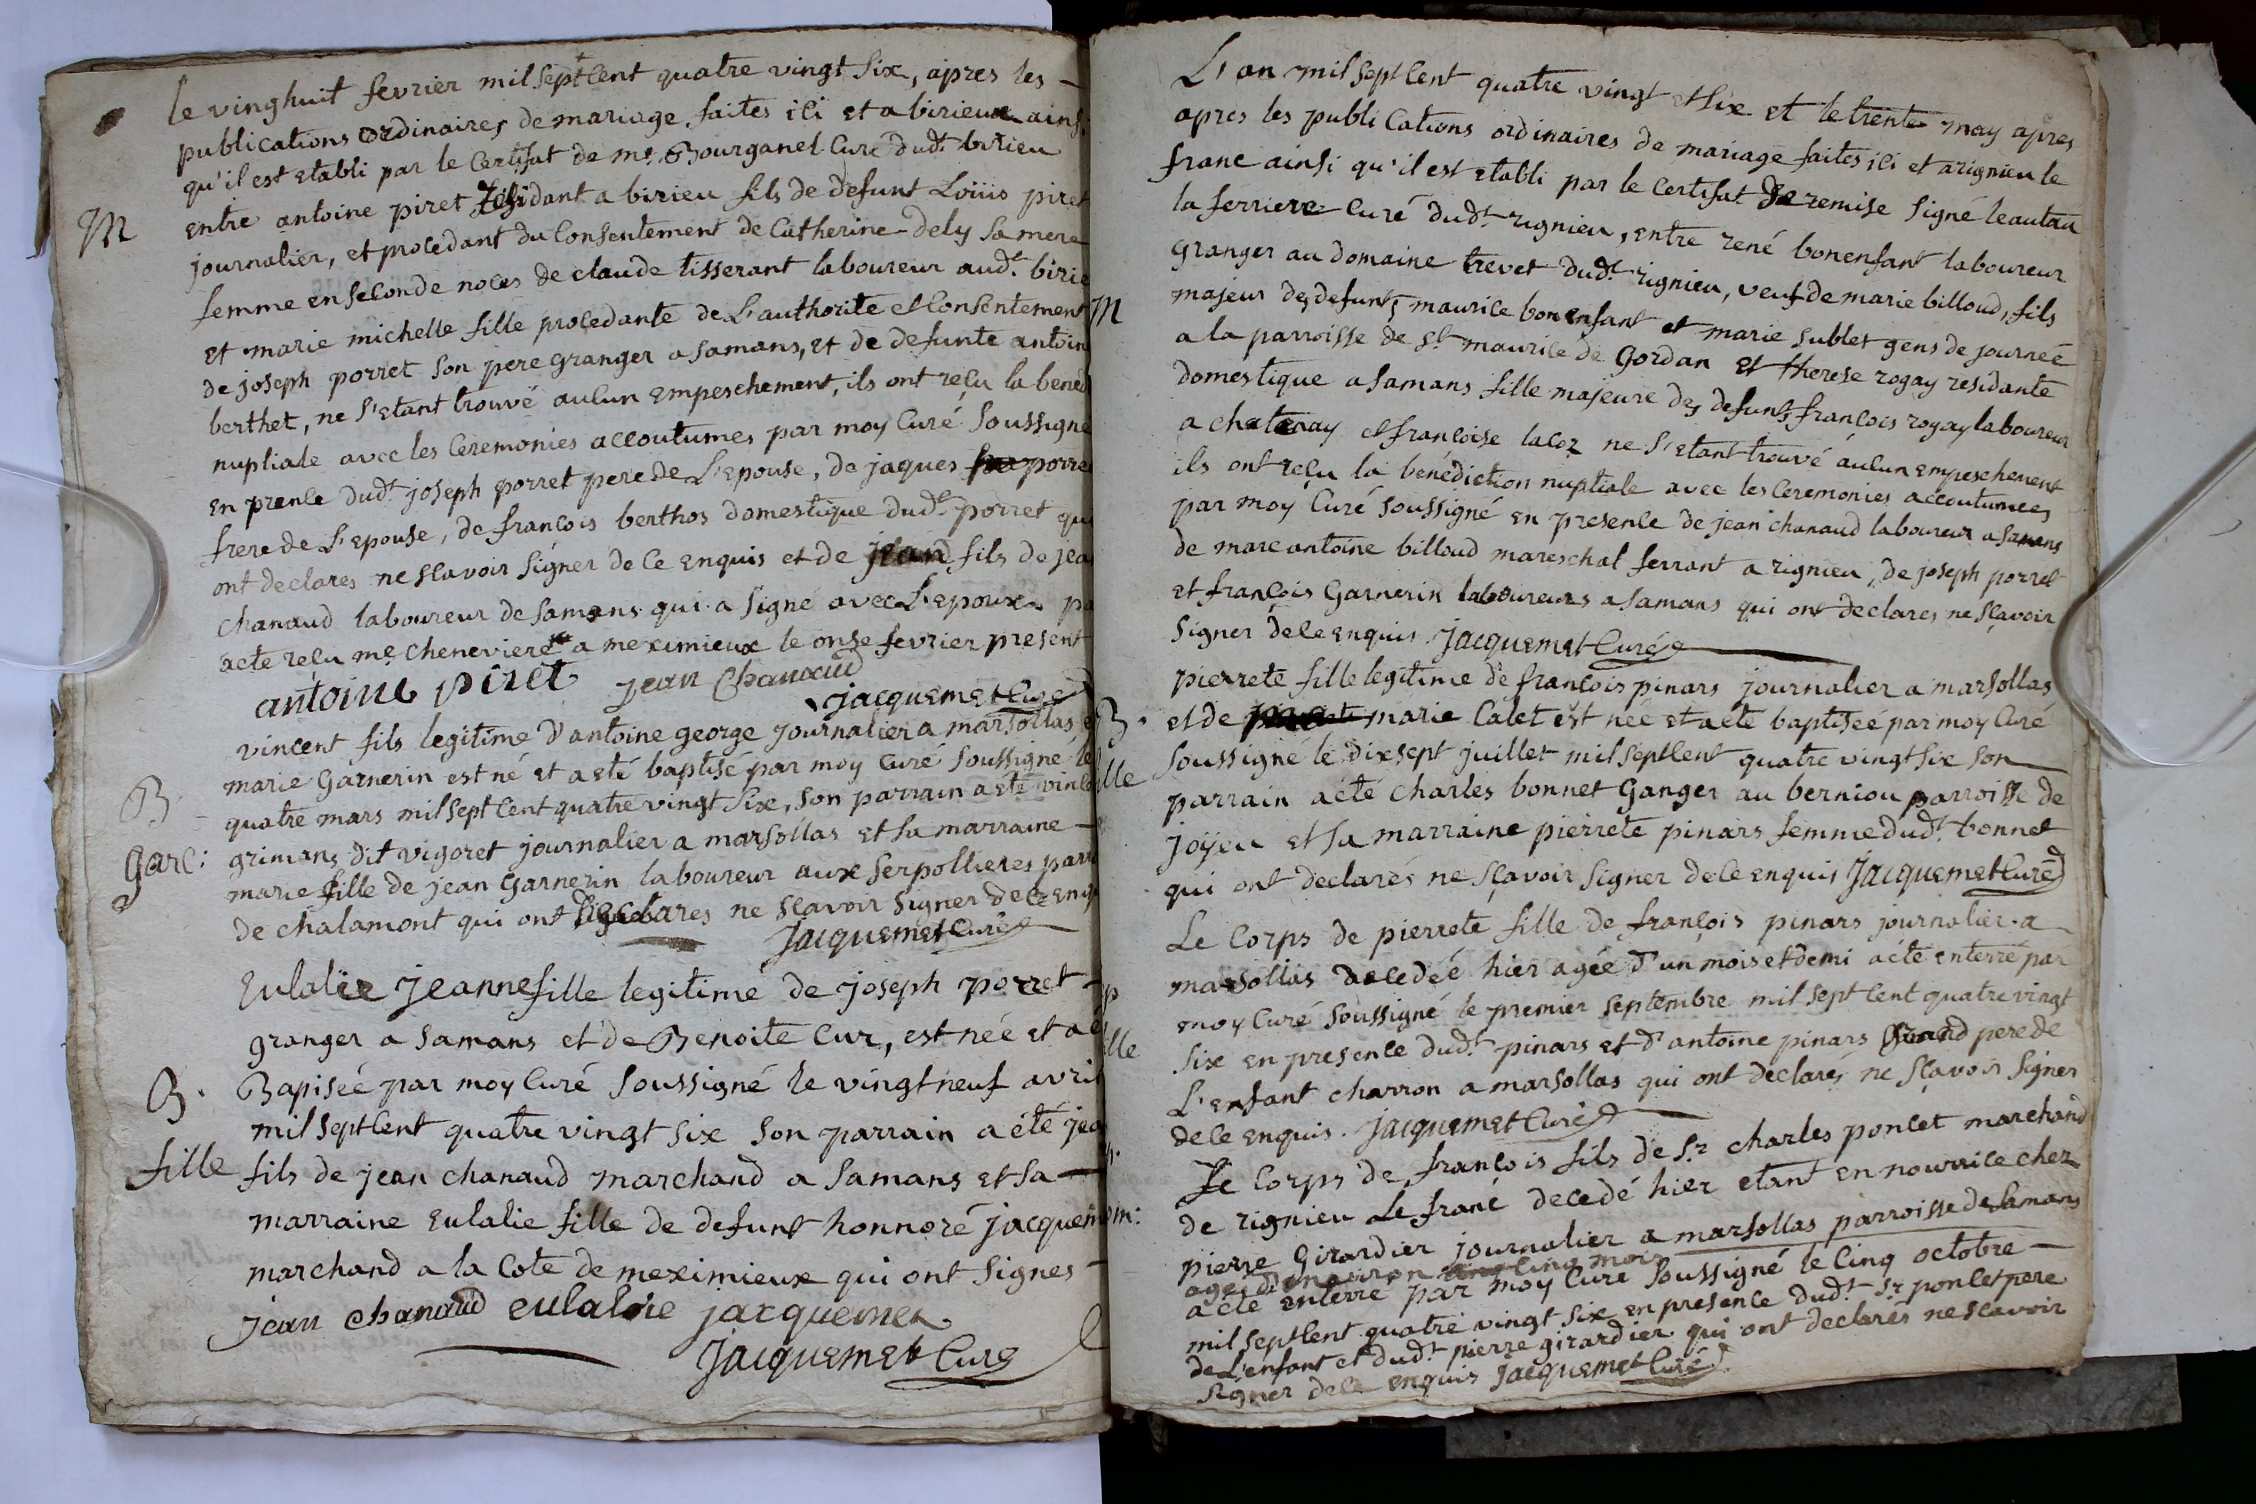 le vinghuit fevrier mil sept Cent quatre vingt six, apres les
publications ordinaires de mariage faites ici et a birieux ains
qu'il est etabli par le Certifat de mr. Bourganel Curé dudt. birieu
M
entre antoine piret residant a birieu fils de defunt Loüis piret
journalier, et procedant du Consentement de Catherine dely sa mere
femme en seconde noces de claude tisserant laboureur audt. birie
et marie michelle fille procedante de L'authorite et Consentement
de joseph porret son pere granger a samans, et de defunte antoin
berthet, ne s'etant trouvé aucun empeschement, ils ont reçu la bened
nuptiale avec les Ceremonies accoutumes par moy Curé soussigné
en prence dudt. joseph porret pere de L'epouse, de jaques porre
frere de L'epouse, de françois berthos domestique dudt. porret qui
ont declares ne scavoir signer de ce enquis et de jean fils de jea
chanaud laboureur de samans qui a signé avec L'epoux pa
acte recu me. cheneviere a meximieux le onse fevrier present
antoine piret jean Chanaud
jacquemet Curé
vincent fils legitime d'antoine george journalier a marsollas e
marie Garnerin est né et a eté baptisé par moy Curé soussigné le
B.
quatre mars mil sept Cent quatre vingt six, son parrain a été vince
garc:
grimans dit vigoret journalier a marsollas et sa marraine
marie fille de jean Garnerin laboureur aux serpollieres parr
de chalamont qui ont declares ne scavoir signer de ce enq
jacquemet Curé
Eulalie jeanne fille legitime de joseph porret
granger a samans et de Benoite Cur, est née et a é
B.
Bapisée par moy Curé soussigné le vingt neuf avril
mil sept Cent quatre vingt six son parrain a été jea
fille
fils de jean chanaud marchand a samans et sa
marraine eulalie fille de defunt honnoré jacquem
marchand a la Cote de meximieux qui ont signes
jean chanaud eulalie jacquemet
jacquemet Curé
L'an mil sept Cent quatre vingt et six et le trente may apres
apres les publications ordinaires de mariage faites ici et a rignieu le
franc ainsi qu'il est etabli par le Certifat de remise signé leautau
la ferriere Curé dudt. rignieu, entre rené bonenfant laboureur
granger au domaine trevet dudt. rignieu, veuf de marie billoud, fils
M
majeur des defunts maurice bonenfant et marie sublet gens de journeé
a la parroisse de st. maurice de Gordan et therese rogay residante
domestique a samans fille majeure des defunts françois rogay laboureur
a chatenay et françoise lacoz ne s'etant trouvé aucun empeschement
ils ont reçu la bénédiction nuptiale avec les Ceremonies accoutumees
par moy Curé soussigné en presence de jean chanaud laboureur a samans
de marc antoine billoud mareschal ferrant a rignieu, de joseph porret
et françois Garnerin laboureurs a samans qui ont declares ne sçavoir
signer de ce enquis jacquemet Curé
pierrete fille legitime de françois pinars journalier a marsollas
B.
et de marie Calet est née et a eté baptiseé par moy Curé
soussigné le dix sept juillet mil sept Cent quatre vingt six son
ille
parrain a été charles bonnet Ganger au berniou parroisse de
joyeu et sa marraine pierrete pinars femme dudt. bonnet
qui ont declarés ne sçavoir signer de ce enquis jacquemet Curé
Le Corps de pierrete fille de françois pinars journalier a
marsollas decedeé hier ageé d'un mois et demi a été enterré par
moy Curé soussigné le premier septembre mil sept Cent quatre vingt
ille
six en presence dudt. pinars et d'antoine pinars Grand pere de
L'enfant charron a marsollas qui ont declarés ne sçavoir signer
de ce enquis. jacquemet Curé
Le Corps de françois fils de sr. charles poncet marchand
de rignieu Le franc decedé hier etant en nourrice chez
m:
pierre Girardier journalier a marsollas parroisse de samans
agé d'environ cinq mois
a été enterré par moy Curé soussigné le Cinq octobre
mil sept Cent quatre vingt six en presence dudt. sr. poncet pere
de L'enfant et dudt. pierre girardier qui ont declarés ne scavoir
signer de ce enquis jacquemet Curé